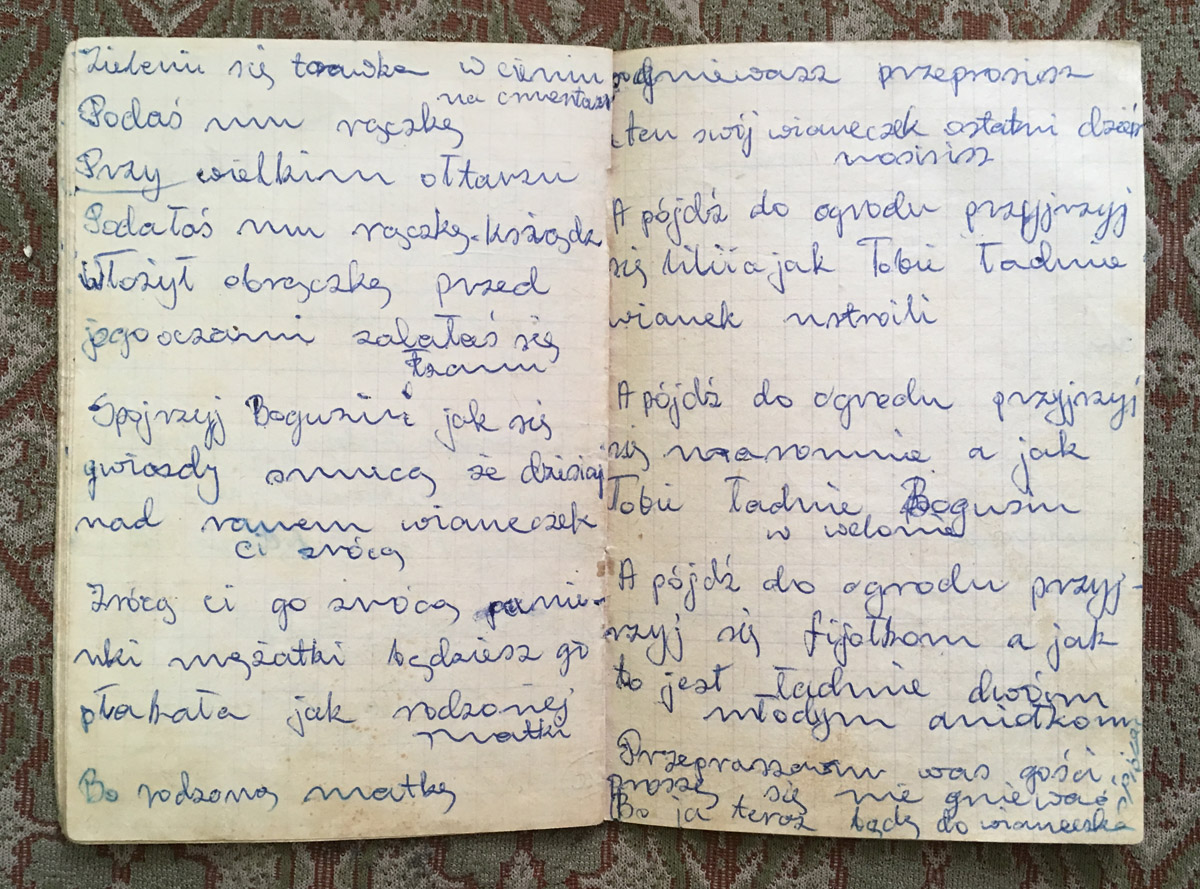 Zieleni się trawka w cieniu
na cmentarzu
Podaś mu rączkę
Przy wielkim ołtarzu
Podałaś mu rączkę. ksiądz
włożył obrączkę przed
jego oczami zalałaś się
łzami
Spojrzyj Bogusiu jak się
gwiazdy smucą że dzisiaj
nad ranem wianeczek
ci zrócą
Zrócą ci go zrócą panie-
nki mężatki będziesz go
płakała jak rodzonej
matki
Bo rodzoną matkę
gniewasz przeprosisz
a ten swój wianeczek ostatni dzień
nosisisz
A pójdź do ogrodu przyjrzyj
się liliia jak Tobie ładnie
wianek ustroili
A pójdź do ogrodu przyjrzyj
się a jak
Tobie ładnie Bogusiu
w welonie
A pójdź do ogrodu przyj-
rzyj się fijołkom a jak
to jest ładnie dwóim
młodym aniołkom
Przepraszam was gości
proszę się nie gniewać
Bo ja teraz będę do wianeczka
śpiewać